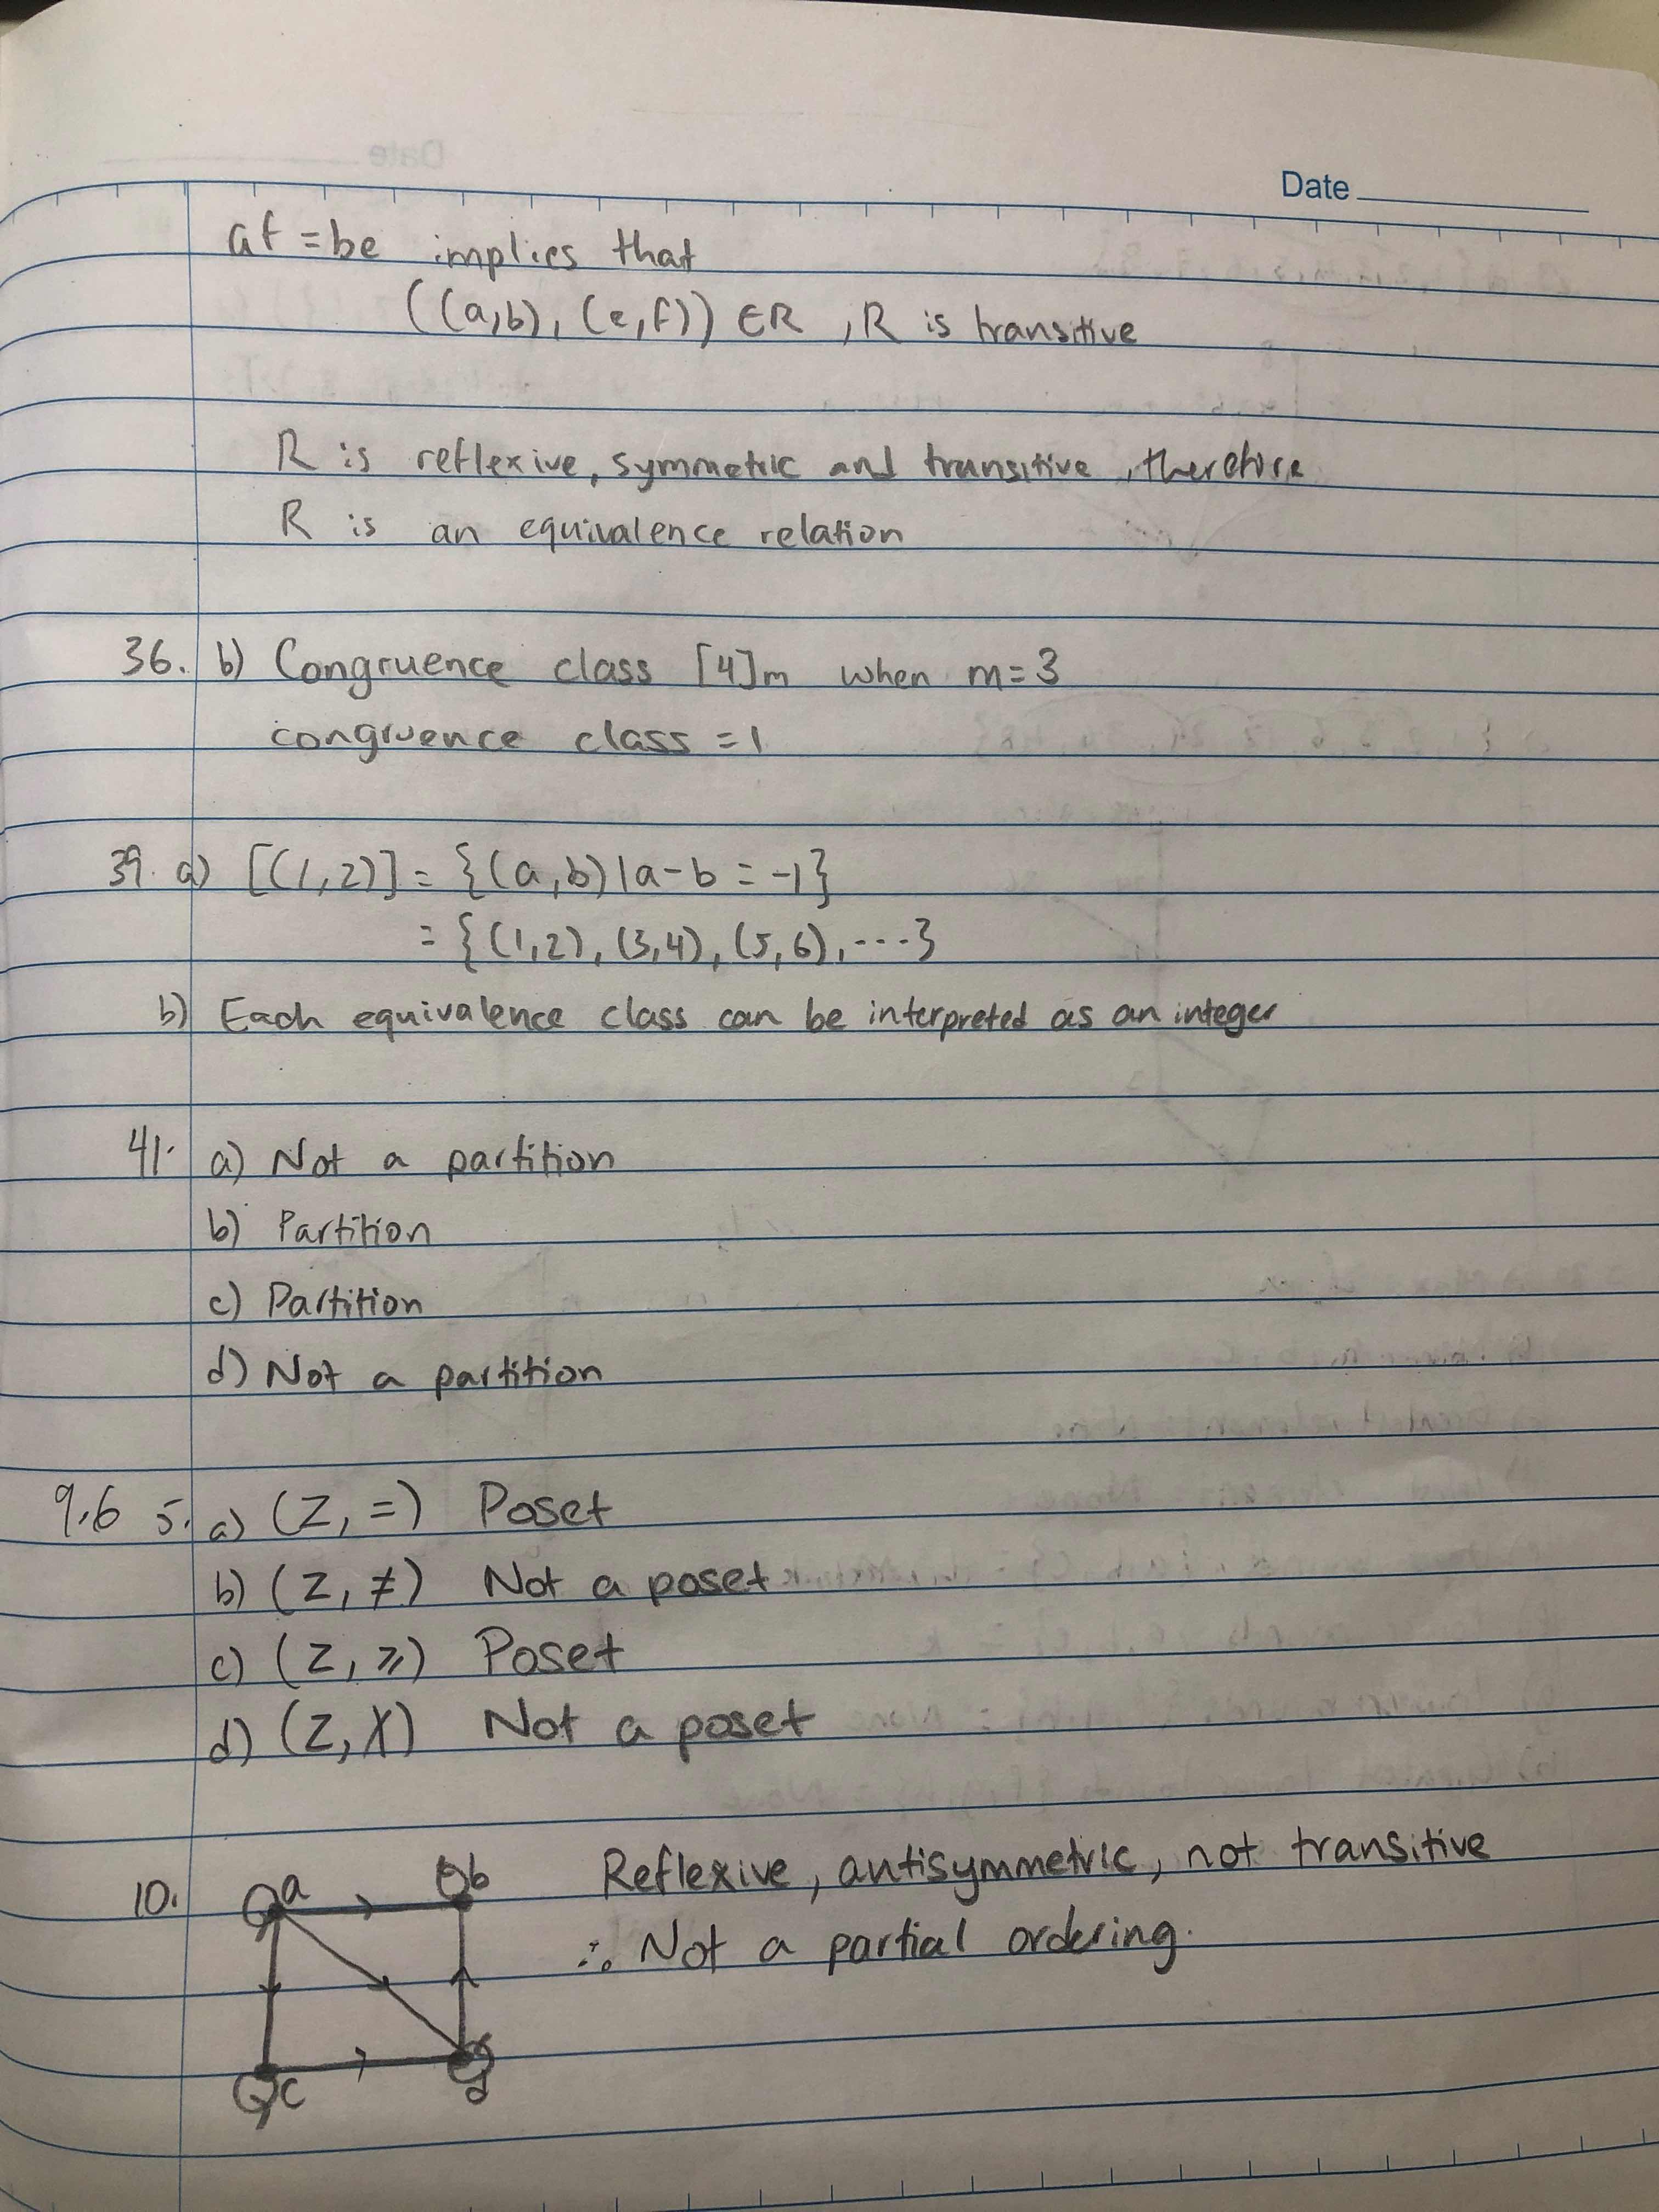 Date
af = be implies that
((a,b), (e,f)) ∈R , R is transitive
R is reflexive, symmetric and transitive, therefore
R is an equivalence relation
36. b) Congruence class [4]m when m=3
congruence class = 1
39. a) [(1,2)] = {(a,b) | a-b = -1}
= {(1,2), (3,4), (5,6), ...}
b) Each equivalence class can be interpreted as an integer
41. a) Not a partition
b) Partition
c) Partition
d) Not a partition
9.6 5. a) (Z, =) Poset
b) (Z, ≠) Not a poset
c) (Z, ≥) Poset
d) (Z, ∤) Not a poset
10. a b Reflexive, antisymmetric, not transitive
∴ Not a partial ordering.
c d